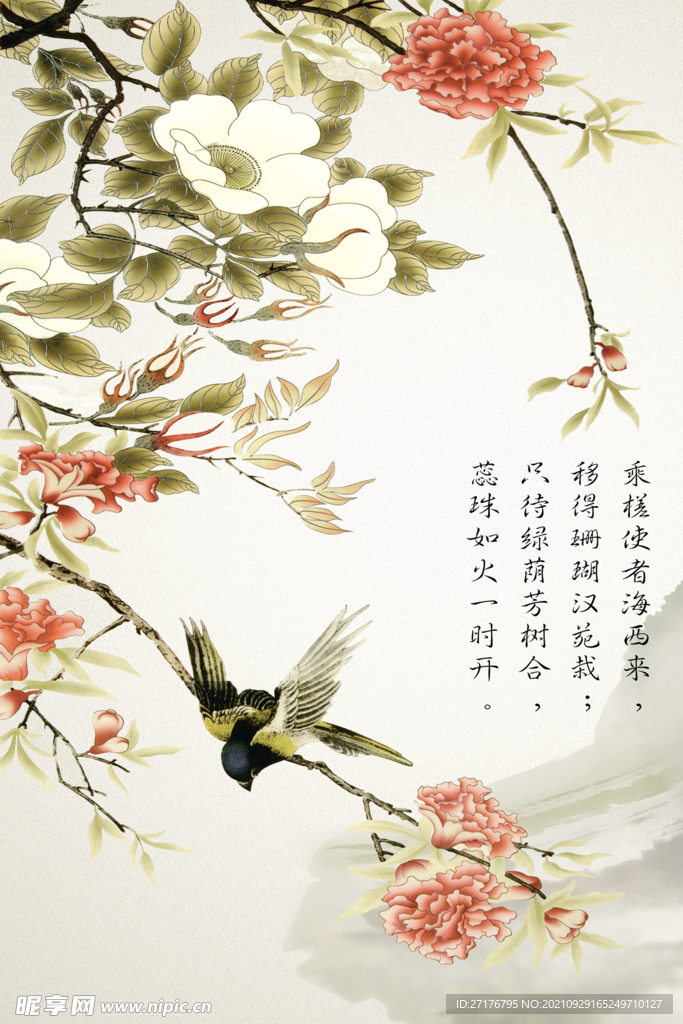 乘槎使者海西来，
移得珊瑚汉苑栽；
只待绿荫芳树合，
蕊珠如火一时开。
昵享网 www.nipic.cn
ID:27176795 NO:20210929165249710127